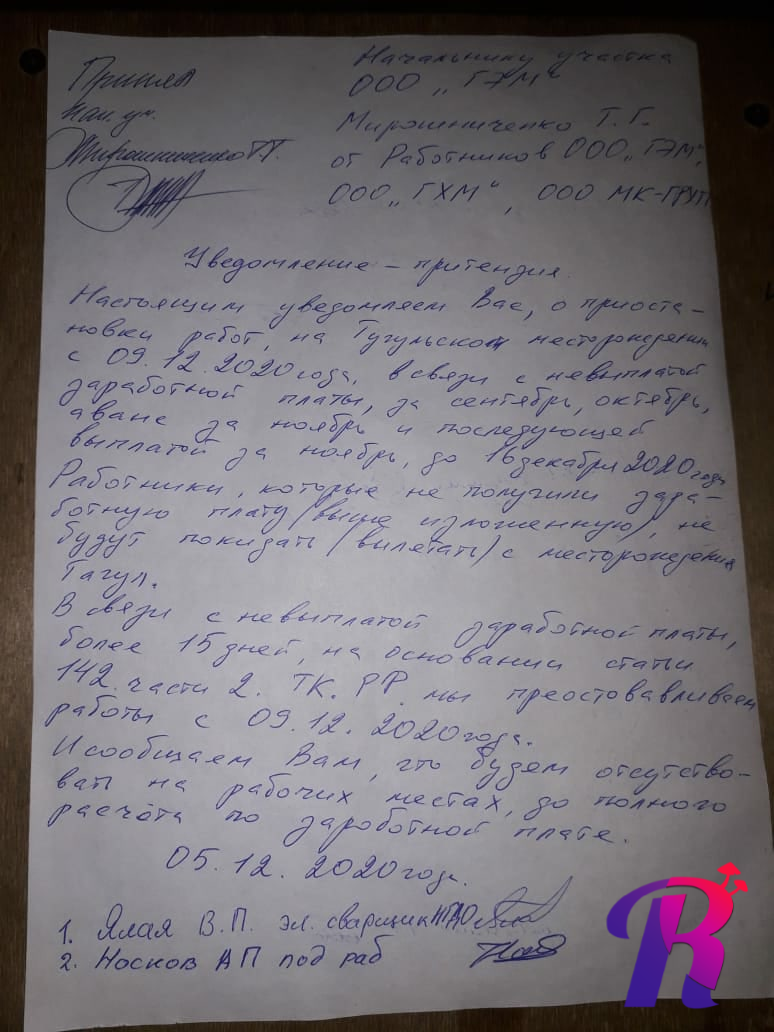 Принял
Нач. уч.
Мирошниченко Т.Г.
Начальнику участка
ООО „ГЭМ“
Мирошниченко Т. Г.
от Работников ООО „ГЭМ“,
ООО „ГХМ“, ООО МК-ГРУП
Уведомление – притензия.
Настоящим уведомляем Вас, о приоста-
новки работ, на Тугульском месторождении
с 09.12.2020 года, в связи с невыплатой
заработной платы, за сентябрь, октябрь,
аванс за ноябрь и последующей
выплатой за ноябрь, до 16 декабря 2020 года
Работники, которые не получили зара-
ботную плату (выше изложенную), не
будут покидать (вылетать) с месторождения
Тагул.
В связи с невыплатой заработной платы,
более 15 дней, на основании статьи
142. части 2. ТК. РФ. мы преоставливаем
работы с 09.12.2020 года.
И сообщаем Вам, что будем отсутство-
вать на рабочих местах, до полного
расчёта по зароботной плате.
05.12.2020 года.
1. Ялая В.П. эл. сварщик
2. Носков АП под раб
R